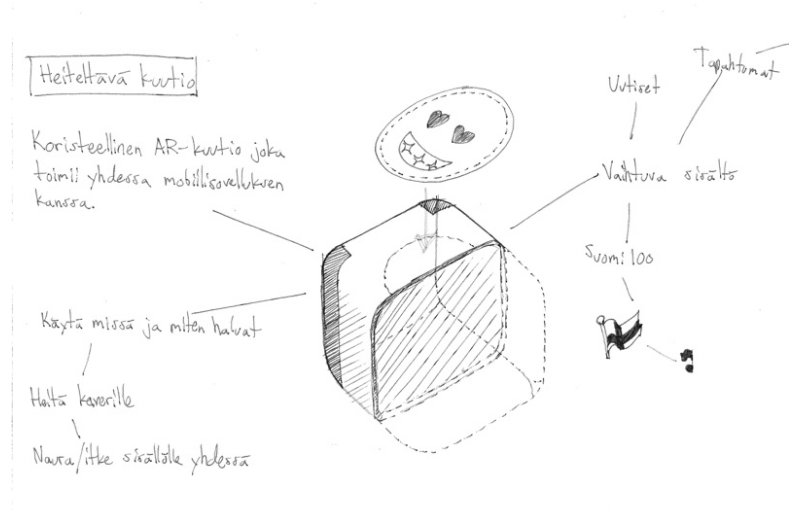 Heiteltävä kuutio
Koristeellinen AR-kuutio joka
toimii yhdessä mobiilisovelluksen
kanssa.
Käytä missä ja miten haluat
Heitä kaverille
Naura/itke sisällölle yhdessä
Uutiset
Tapahtumat
Vaihtuva sisältö
Suomi 100
?